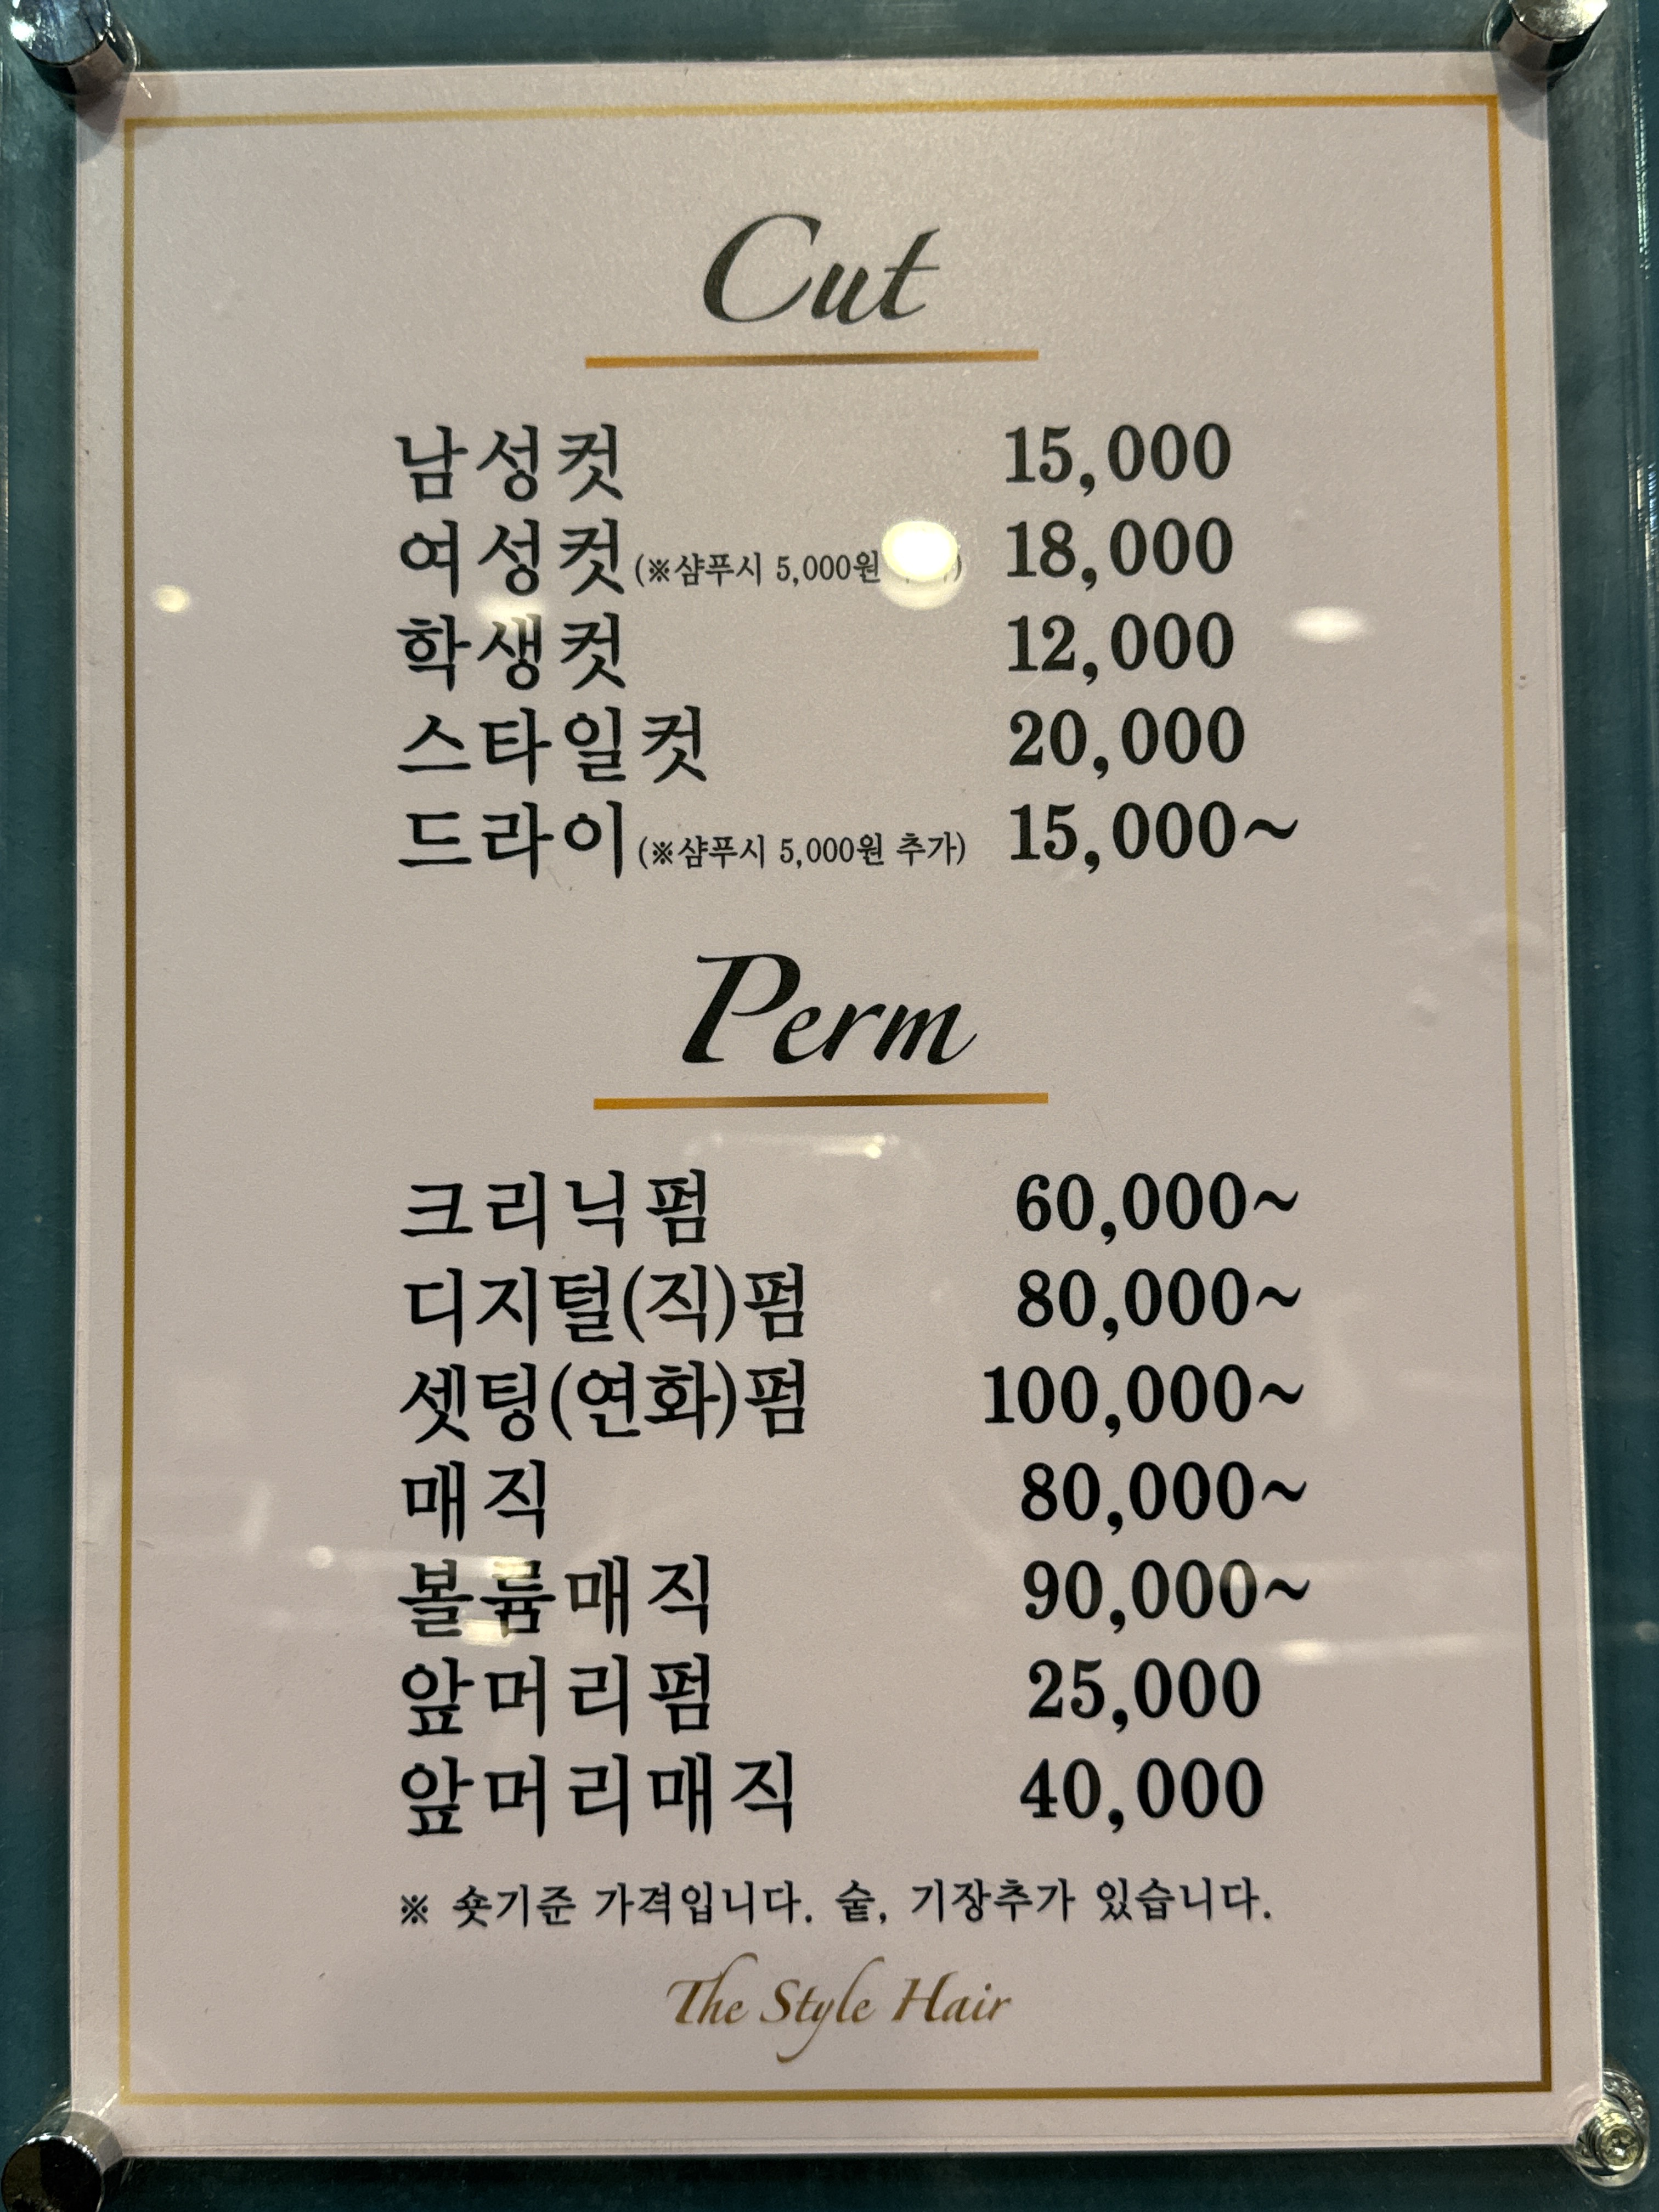 Cut
남성컷 15,000
여성컷(※샴푸시 5,000원 18,000
학생컷 12,000
스타일컷 20,000
드라이(※샴푸시 5,000원 추가) 15,000~
Perm
크리닉펌 60,000~
디지털(직)펌 80,000~
셋팅(연화)펌 100,000~
매직 80,000~
볼륨매직 90,000~
앞머리펌 25,000
앞머리매직 40,000
※ 숏기준 가격입니다. 숱, 기장추가 있습니다.
The Style Hair